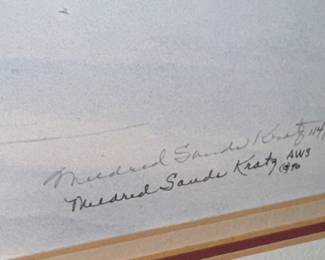 Mildred Sands Kratz 114/
Mildred Sands Kratz AWS
©80